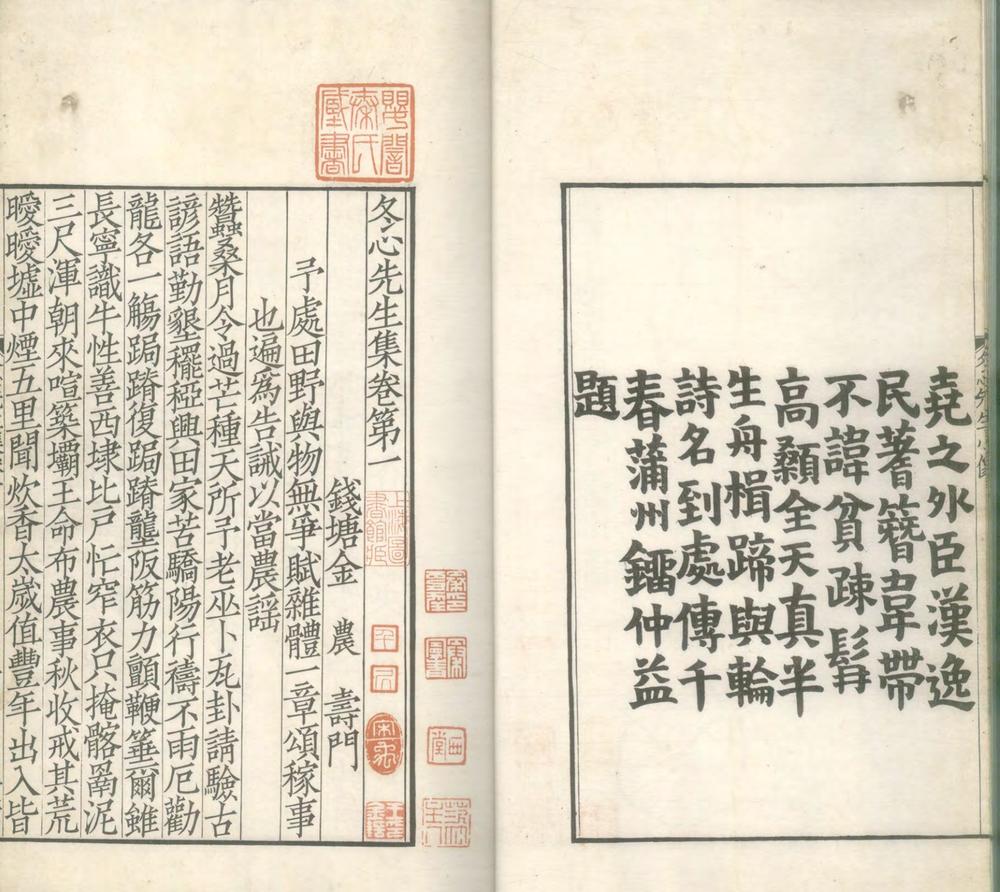 堯之外臣漢逸
民蓍簪韋帶
不諱貧疎髯
高顙全天真半
生舟楫蹄與輪
詩名到處傳千
春蒲州鐂仲益
題
冬心先生集卷第一
錢塘金 農 壽門
予處田野與物無爭賦雜體一章頌稼事
也遍為告誡以當農謡
蠶桑月令過芒種天所予老巫卜瓦卦請驗古
諺語勤墾䆉稏興田家苦驕陽行禱不雨厄勸
龍各一觴跼蹐復跼蹐壟阪筋力顫鞭箠爾雖
長寧識牛性善西埭比戶忙窄衣只掩骼剮泥
三尺渾朝來喧築壩王命布農事秋收戒其荒
曖曖墟中煙五里聞炊香太歲值豐年出入皆
上海圖
書館藏